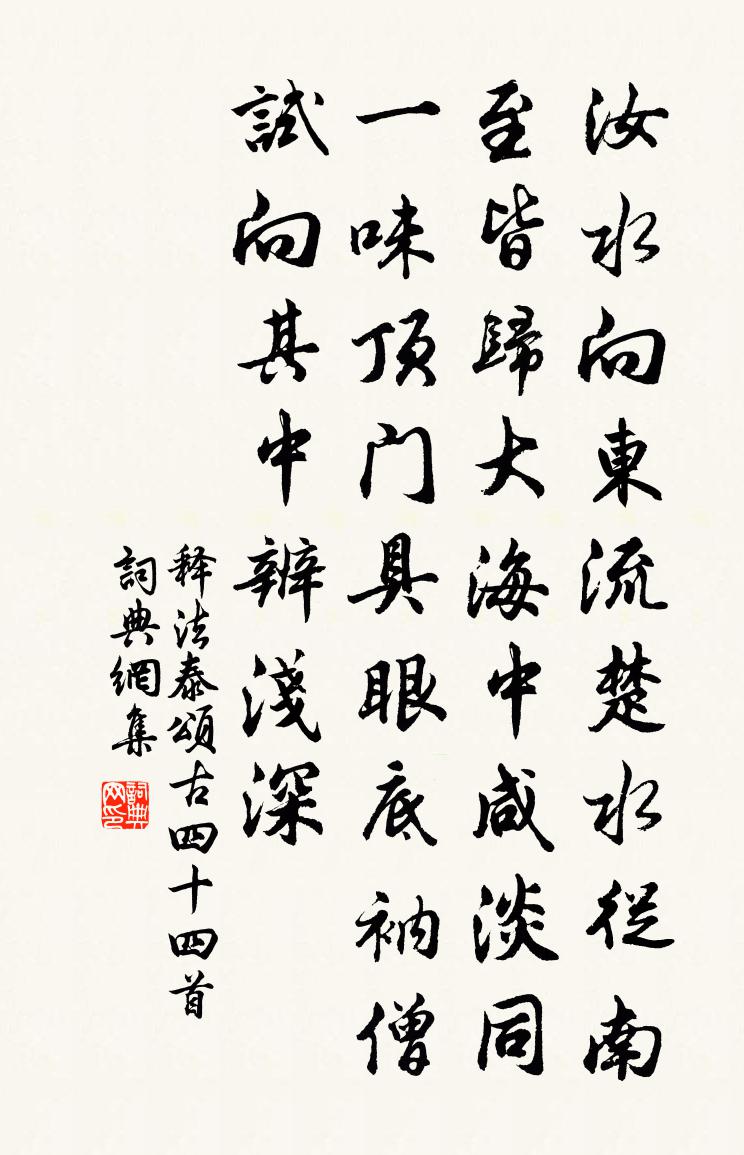 汝水向東流楚水從南
至皆歸大海中咸淡同
一味頂门具眼底衲僧
試向其中辨淺深
释法泰頌古四十四首
詞典網集
詞典网印